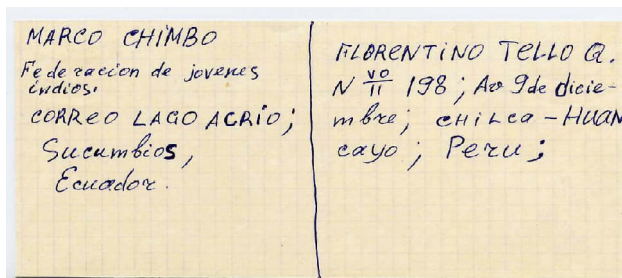 MARCO CHIMBO
Federacion de jovenes
indios.
CORREO LAGO ACRÍO;
Sucumbios,
Ecuador.
FLORENTINO TELLO Q.
N vo/II 198; Av 9 de dicie-
mbre; CHILCA - HUAN
cayo; Peru;